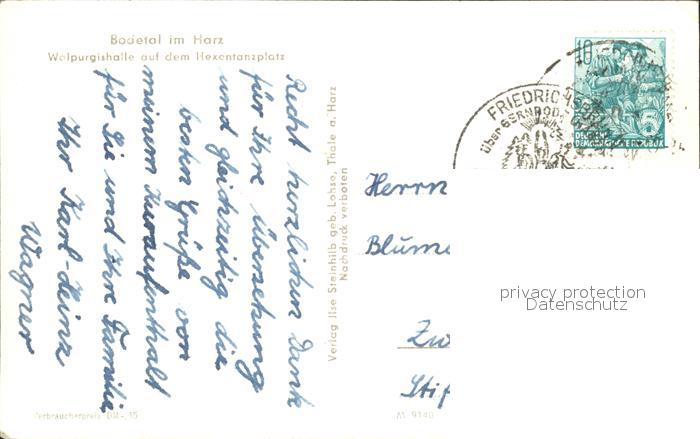 Bodetal im Harz
Walpurgishalle auf dem Hexentanzplatz
Recht herzlichen Dank
für Ihre Übersetzung
und gleichzeitig die
besten Grüße von
meinem Kuraufenthalt
für Sie und Ihre Familie
Ihr Karl-Heinz
Wagner
Verbraucherpreis DM -,15
Verlag Ilse Steinhilb geb. Lohse, Thale a. Harz
Nachdruck verboten
M 9140
FRIEDRICHS
über GERNRODE
10
5
DEUTSCHE
DEMOKRATISCHE REPUBLIK
Herrn
Blume
Zw
Stif
privacy protection
Datenschutz